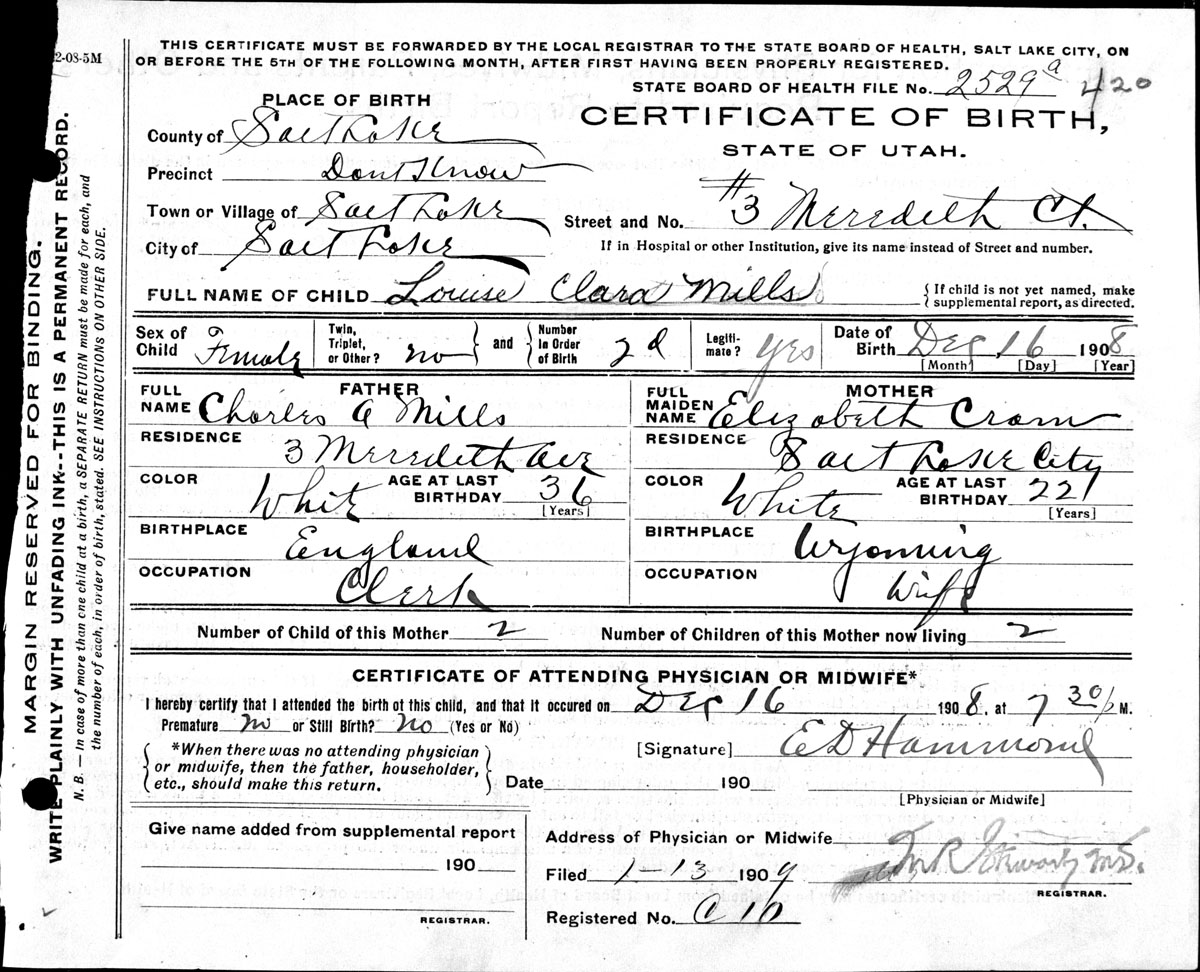 2-08-5M
THIS CERTIFICATE MUST BE FORWARDED BY THE LOCAL REGISTRAR TO THE STATE BOARD OF HEALTH, SALT LAKE CITY, ON
OR BEFORE THE 5TH OF THE FOLLOWING MONTH, AFTER FIRST HAVING BEEN PROPERLY REGISTERED.
STATE BOARD OF HEALTH FILE No. 2529 a 420
PLACE OF BIRTH
CERTIFICATE OF BIRTH,
STATE OF UTAH.
County of Salt Lake
Precinct Dont Know
Town or Village of Salt Lake
Street and No. #3 Meredith Ct.
City of Salt Lake
If in Hospital or other Institution, give its name instead of Street and number.
FULL NAME OF CHILD Louise Clara Mills { If child is not yet named, make
supplemental report, as directed.
Sex of Child Female Twin, Triplet, or Other? no } and { Number in Order of Birth 2d Legiti- mate? yes Date of Birth Dec 16 1908
[Month] [Day] [Year]
FATHER
FULL NAME Charles A Mills
RESIDENCE 3 Meredith Ave
COLOR White AGE AT LAST BIRTHDAY 36
[Years]
BIRTHPLACE England
OCCUPATION Clerk
MOTHER
FULL MAIDEN NAME Elizabeth Cram
RESIDENCE Salt Lake City
COLOR White AGE AT LAST BIRTHDAY 22
[Years]
BIRTHPLACE Wyoming
OCCUPATION Wife
Number of Child of this Mother 2 Number of Children of this Mother now living 2
CERTIFICATE OF ATTENDING PHYSICIAN OR MIDWIFE*
I hereby certify that I attended the birth of this child, and that it occured on Dec 16 1908. at 7 30 p M.
Premature no or Still Birth? no (Yes or No)
{ *When there was no attending physician
or midwife, then the father, householder,
etc., should make this return. }
[Signature] E D Hammond
Date 190
[Physician or Midwife]
Give name added from supplemental report
190
REGISTRAR.
Address of Physician or Midwife
Filed 1-13 1909 M.D.
REGISTRAR.
Registered No. C 16
MARGIN RESERVED FOR BINDING.
WRITE PLAINLY WITH UNFADING INK--THIS IS A PERMANENT RECORD.
N. B. — In case of more than one child at a birth, a SEPARATE RETURN must be made for each, and
the number of each, in order of birth, stated. SEE INSTRUCTIONS ON OTHER SIDE.